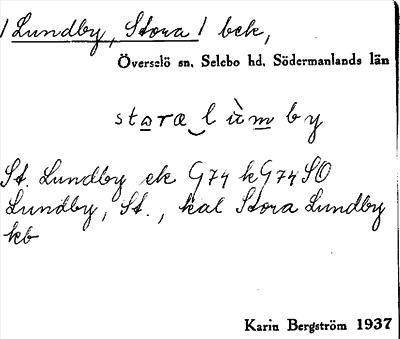 / Lundby, Stora / bek,
Överselö sn, Selebo hd, Södermanlands län
staræ‿lùm by
St. Lundby ek G74 kG74SO
Lundby, St., kal Stora Lundby
kb
Karin Bergström 1937